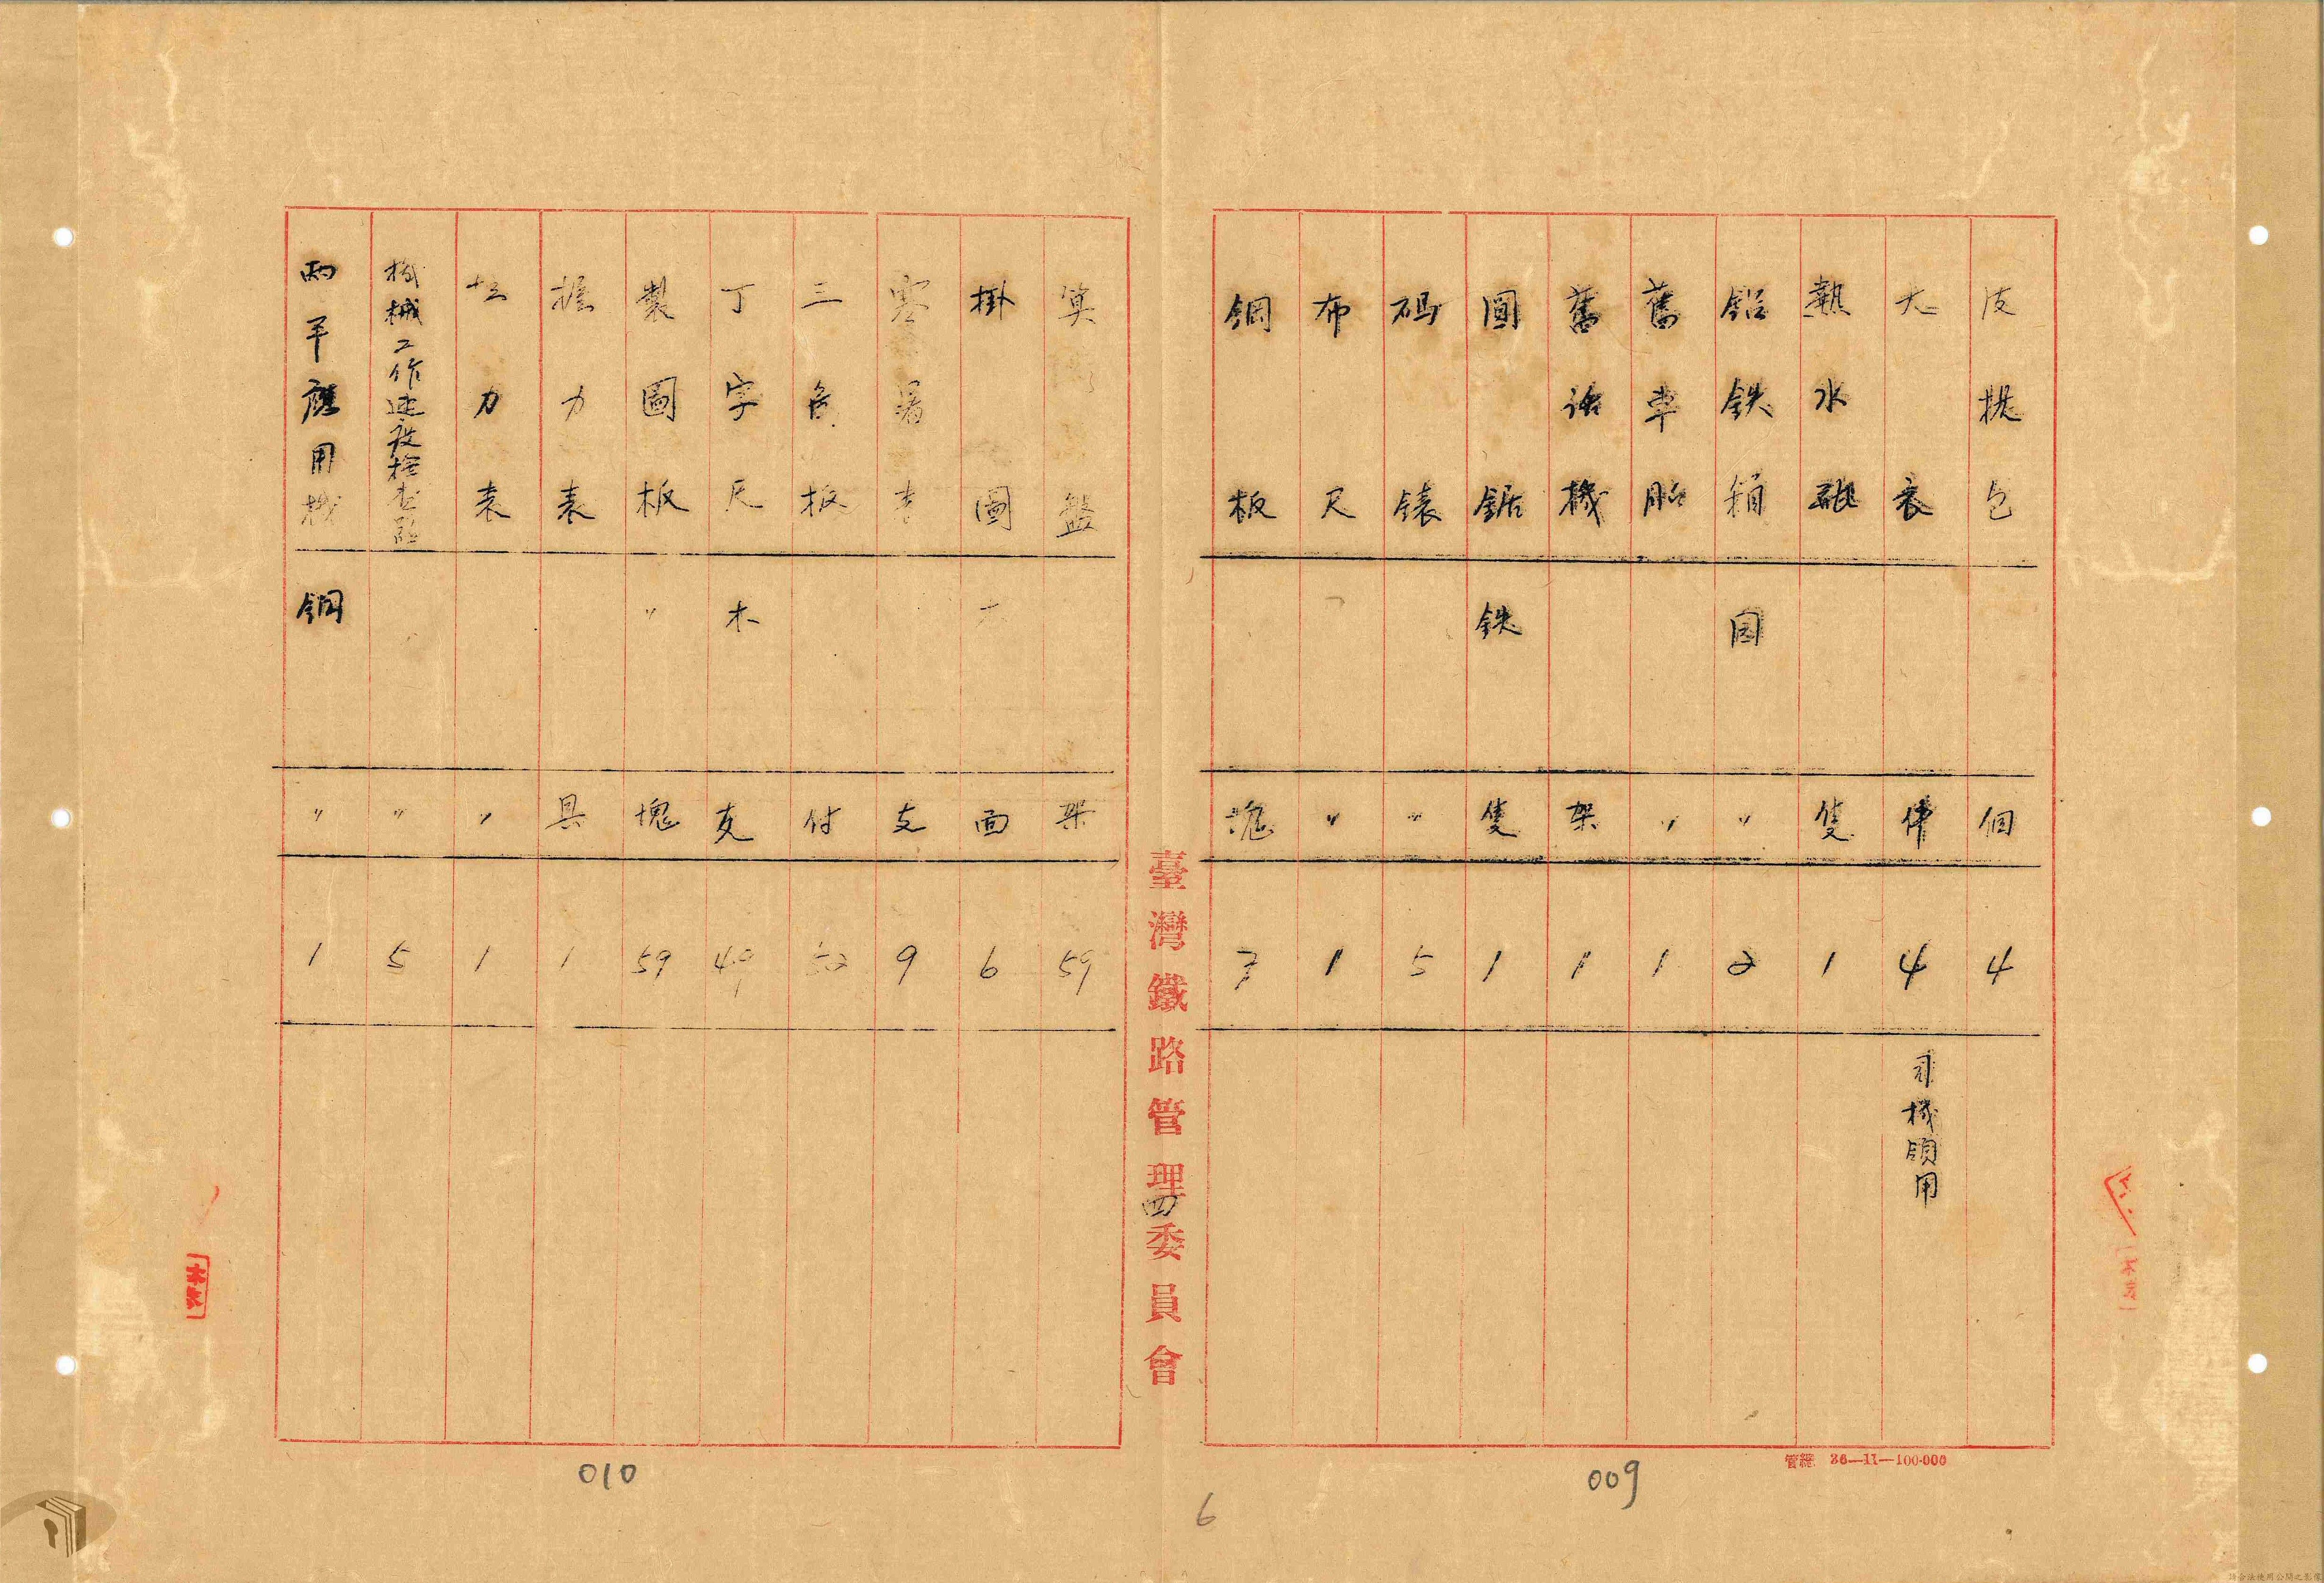 皮挑包 個 4
大衣 件 4 司機領用
熱水瓶 隻 1
鋁鉄箱 固 〃 2
舊車胎 〃 1
舊話機 架 1
圓鋸 鉄 隻 1
碼錶 〃 5
布尺 〃 1
鋼板 塊 3
臺灣鐵路管理委員會
四
算盤 架 59
掛圖 面 6
寒暑表 支 9
三角板 付 52
丁字尺 木 支 49
製圖板 〃 塊 59
握力表 具 1
拉力表 〃 1
機械工作速度檢查器 〃 5
兩平應用機 鋼 〃 1
管經 36—11—100·000
009
010
6